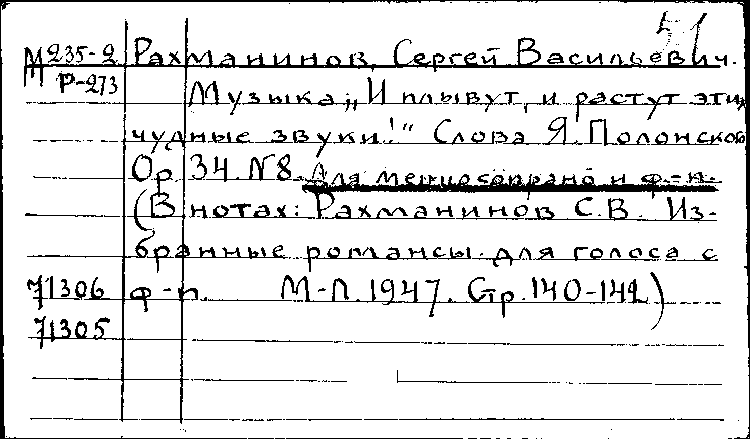 51
М 235-2 Рахманинов, Сергей Васильевич.
М Р-273
Музыка; „И плывут, и растут эти
чудные звуки!" Слова Я. Полонской
Ор. 34 N8. Для меццосопрано и ф.-п.
(В нотах: Рахманинов С.В. Из-
бранные романсы для голоса с
71306 ф-п. М-Л. 1947. Стр. 140-142)
71305